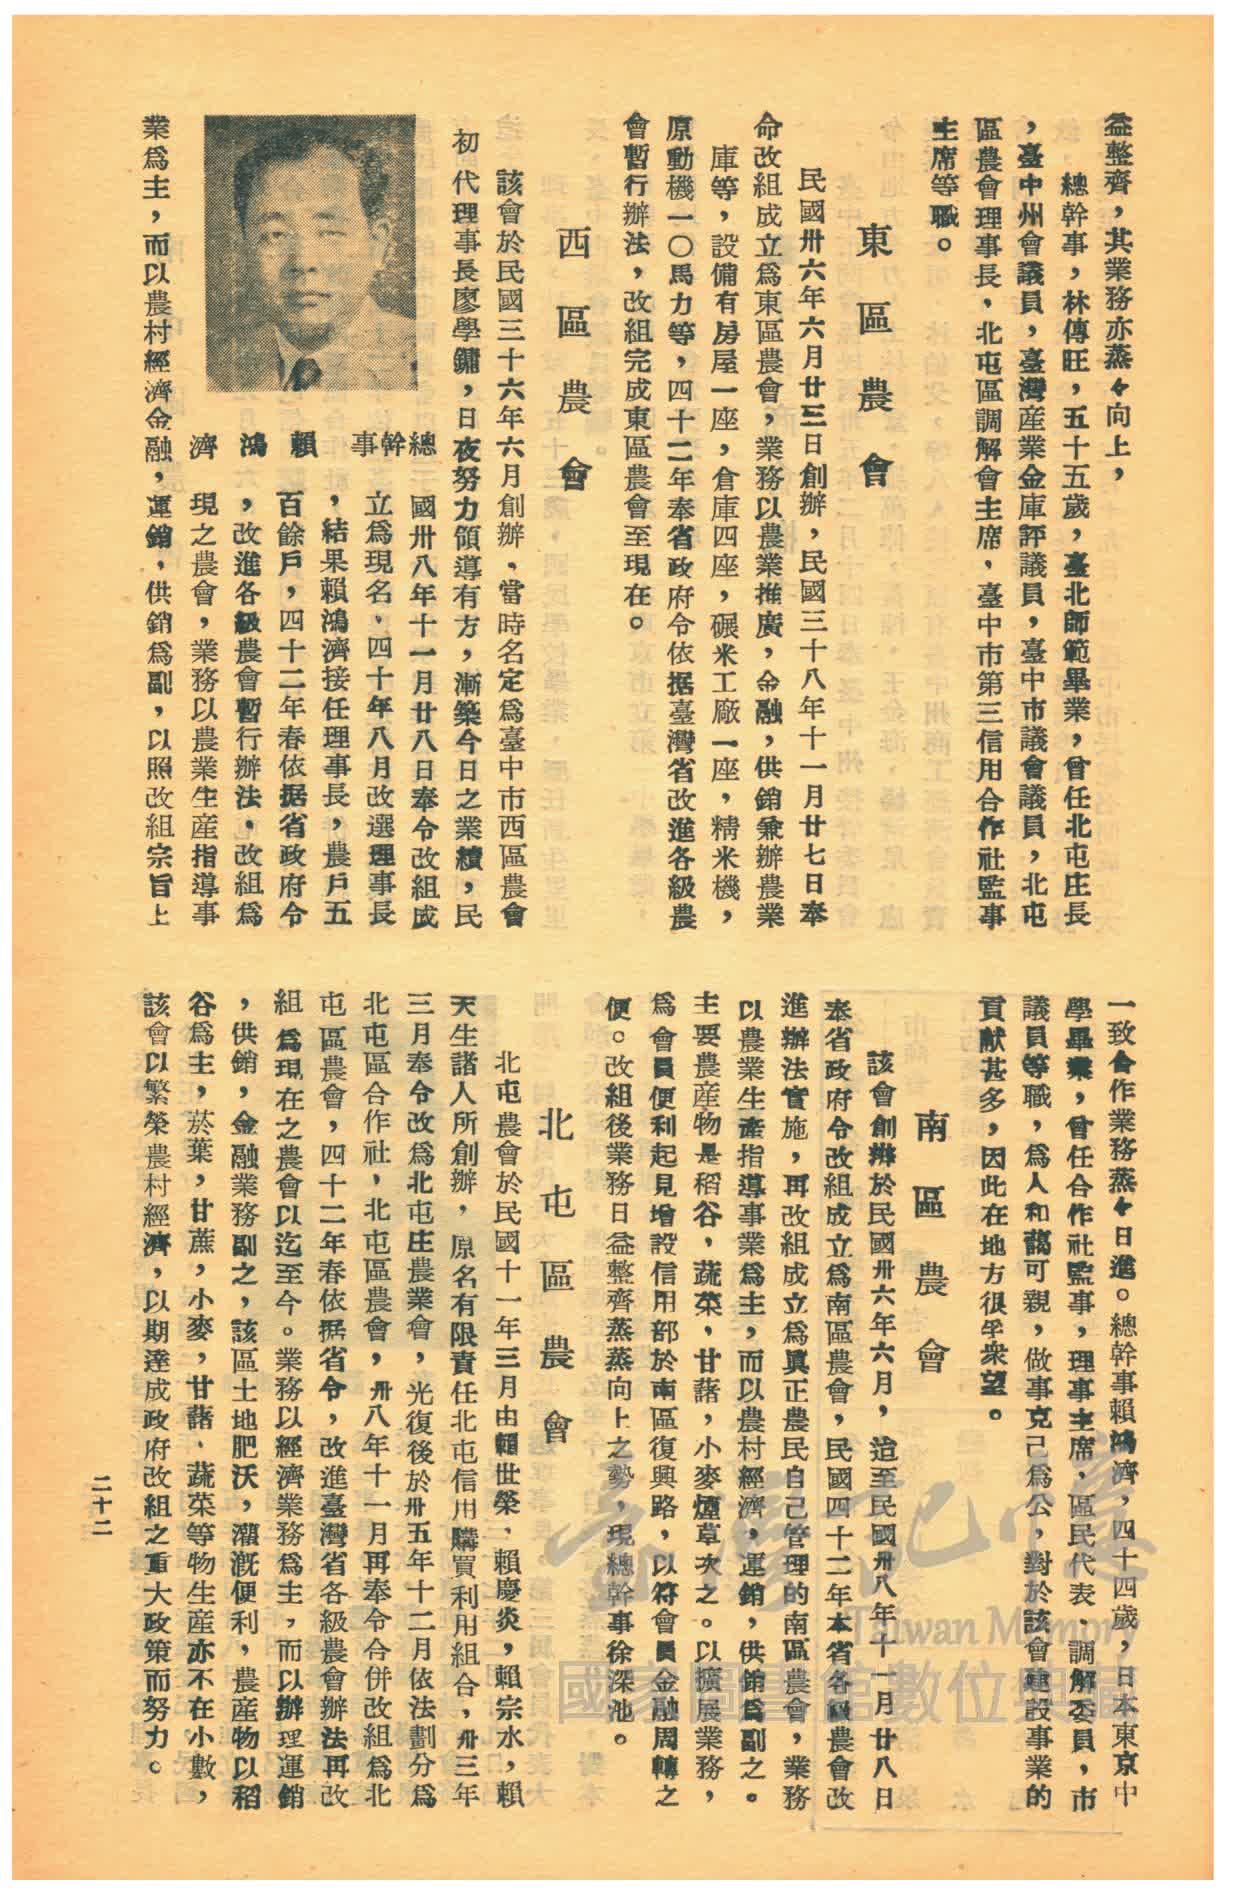 益整齊，其業務亦蒸々向上，
總幹事，林傳旺，五十五歲，臺北師範畢業，曾任北屯庄長
，臺中州會議員，臺灣産業金庫評議員，臺中市議會議員，北屯
區農會理事長，北屯區調解會主席，臺中市第三信用合作社監事
主席等職。
東區農會
民國卅六年六月廿三日創辦，民國三十八年十一月廿七日奉
命改組成立爲東區農會，業務以農業推廣，金融，供銷兼辦農業
庫等，設備有房屋一座，倉庫四座，碾米工廠一座，精米機，
原動機一〇馬力等，四十二年奉省政府令依据臺灣省改進各級農
會暫行辦法，改組完成東區農會至現在。
西區農會
該會於民國三十六年六月創辦、當時名定爲臺中市西區農會
初代理事長廖學鏞，日夜努力領導有方，漸築今日之業績，民
國卅八年十一月廿八日奉令改組成
立爲現名，四十年八月改選理事長
，結果賴鴻濟接任理事長，農戶五
百餘戶，四十二年春依据省政府令
，改進各級農會暫行辦法，改組爲
現之農會，業務以農業生産指導事
總幹事
賴鴻濟
業爲主，而以農村經濟金融，運銷，供銷爲副，以照改組宗旨上
一致合作業務蒸々日進。總幹事賴鴻濟，四十四歲，日本東京中
學畢業，曾任合作社監事，理事主席，區民代表，調解委員，市
議員等職，爲人和藹可親，做事克己爲公，對於該會建設事業的
貢献甚多，因此在地方很孚衆望。
南區農會
該會創辦於民國卅六年六月，迨至民國卅八年十一月廿八日
奉省政府令改組成立爲南區農會，民國四十二年本省各級農會改
進辦法實施，再改組成立爲眞正農民自己管理的南區農會，業務
以農業生產指導事業爲主，而以農村經濟，運銷，供銷爲副之。
主要農産物是稻谷，蔬菜，甘藷，小麥煙草次之。以擴展業務，
爲會員便利起見增設信用部於南區復興路，以符會員金融周轉之
便。改組後業務日益整齊蒸蒸向上之勢，現總幹事徐深池。
北屯區農會
北屯農會於民國十一年三月由賴世榮，賴慶炎，賴宗水，賴
天生諸人所創辦，原名有限責任北屯信用購買利用組合，卅三年
三月奉令改爲北屯庄農業會，光復後於卅五年十二月依法劃分爲
北屯區合作社，北屯區農會，卅八年十一月再奉令合併改組爲北
屯區農會，四十二年春依据省令，改進臺灣省各級農會辦法再改
組爲現在之農會以迄至今。業務以經濟業務爲主，而以辦理運銷
，供銷，金融業務副之，該區土地肥沃，灌漑便利，農産物以稻
谷爲主，菸葉，甘蔗，小麥，甘藷，蔬菜等物生産亦不在小數，
該會以繁榮農村經濟，以期達成政府改組之重大政策而努力。
二十二
臺灣記憶
Taiwan Memory
國家圖書館數位典藏